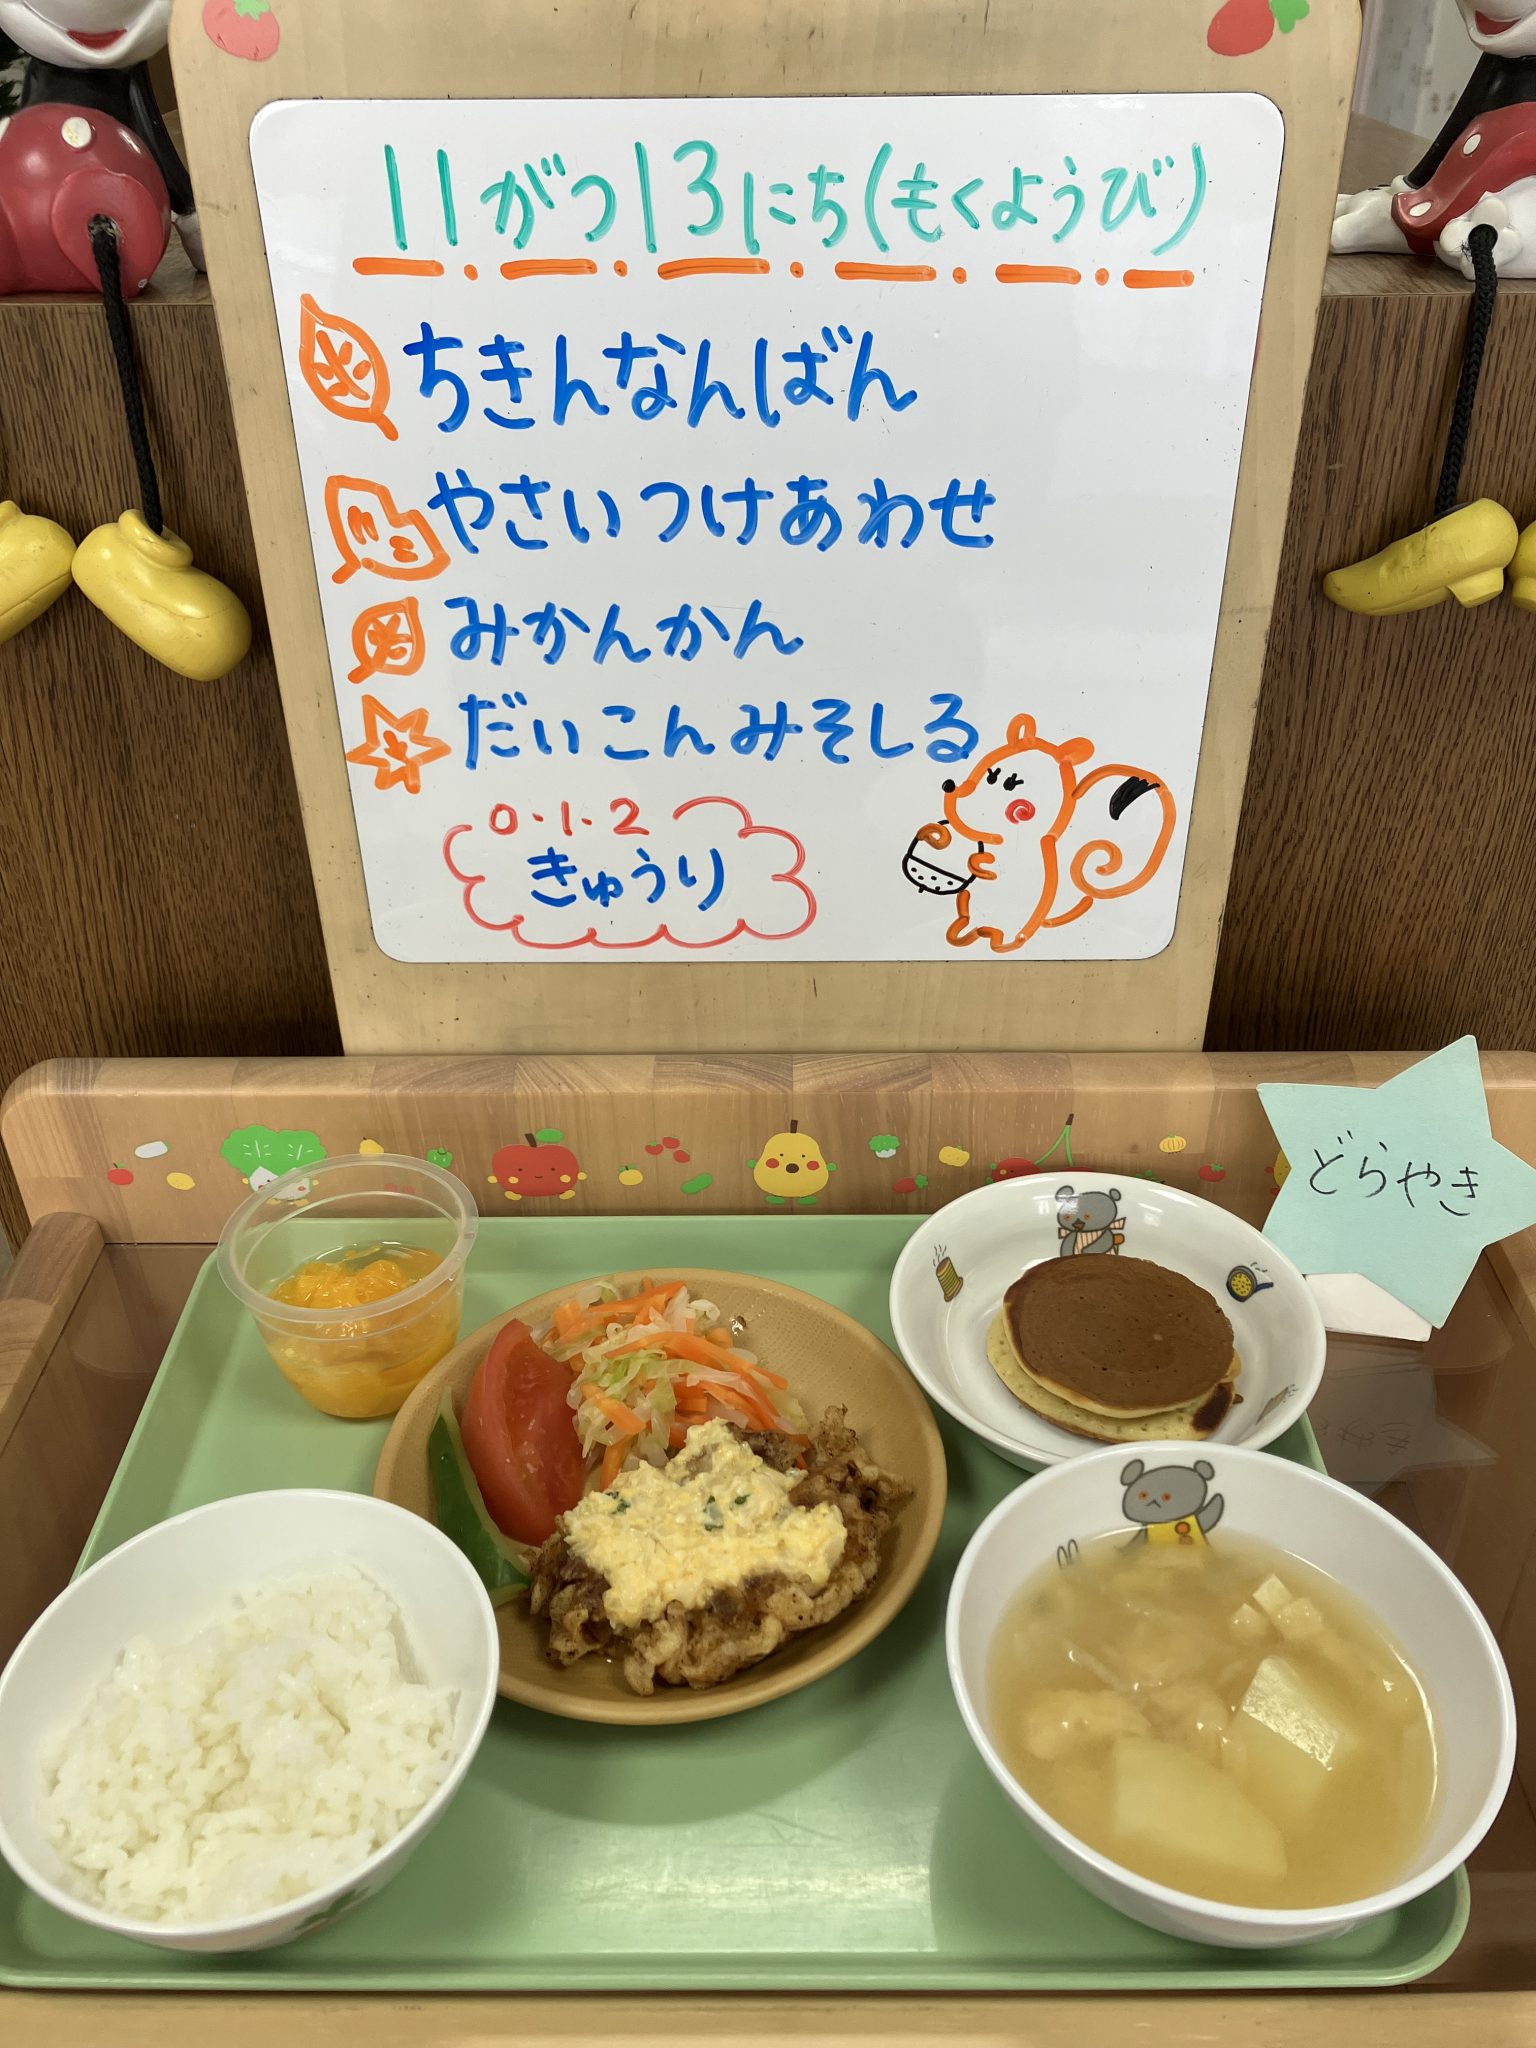 11がつ13にち(もくようび)
ちきんなんばん
やさいつけあわせ
みかんかん
だいこんみそしる
0.1.2
きゅうり
どらやき